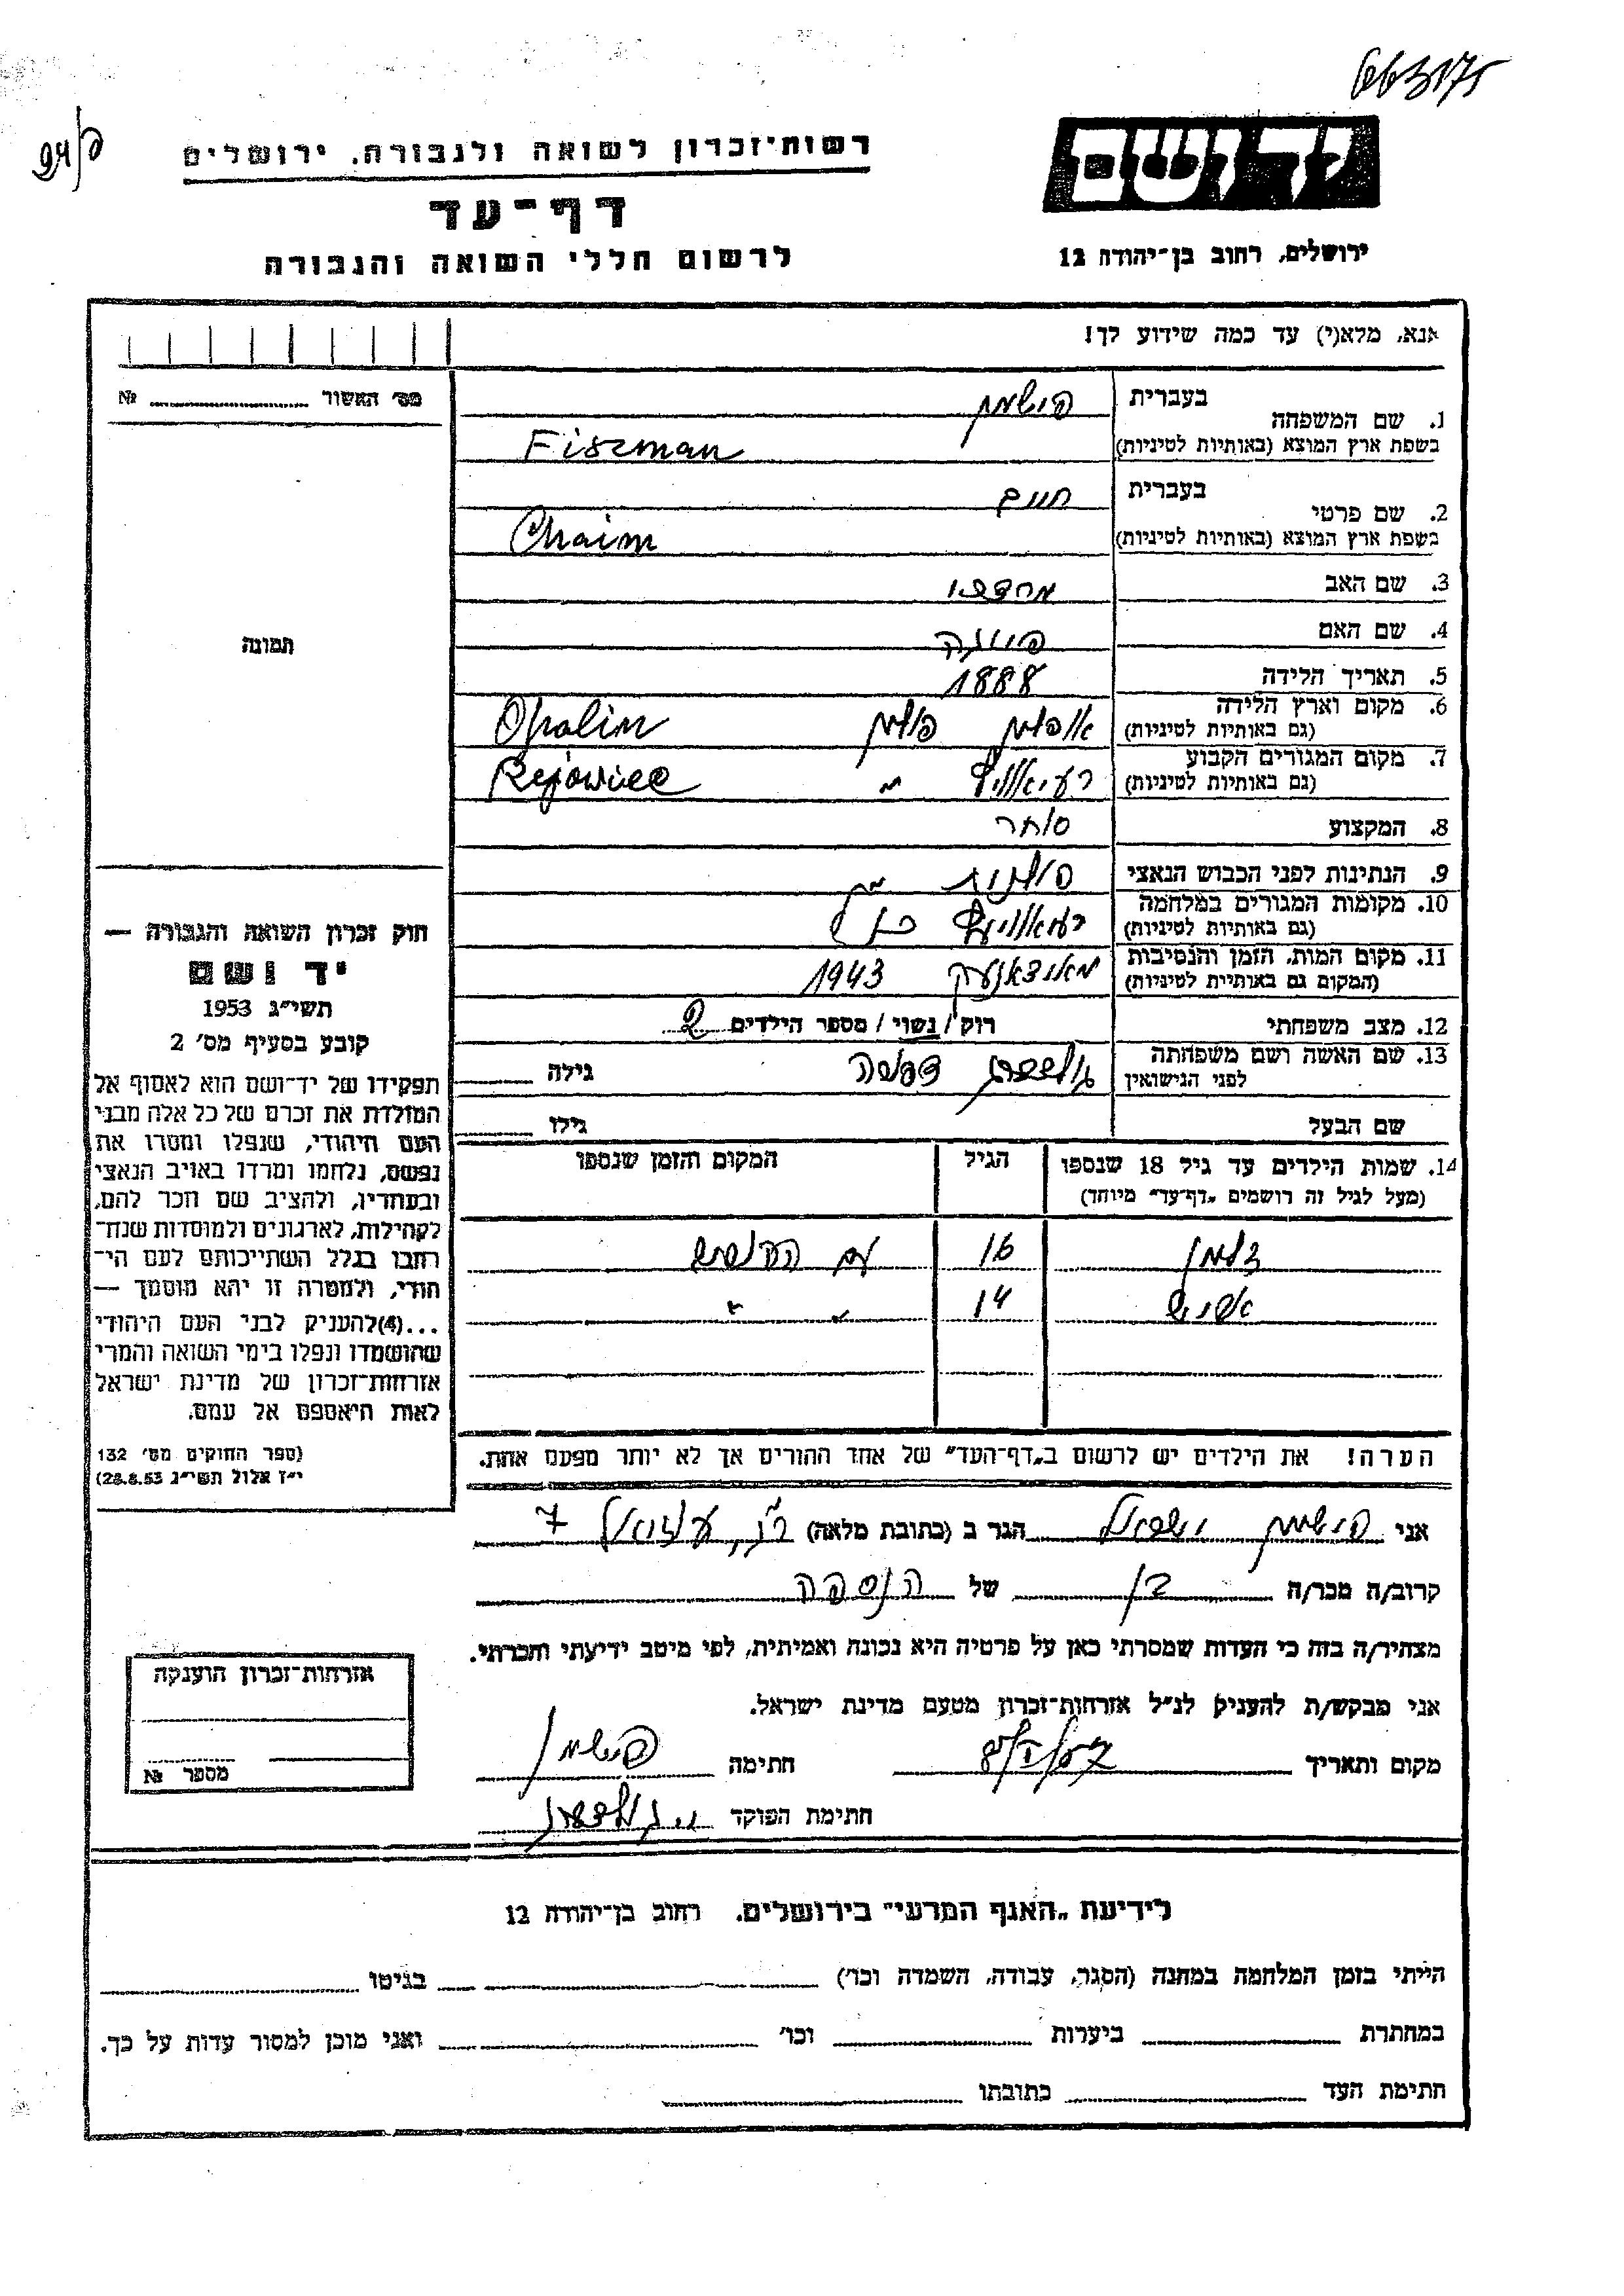 רשות־זכרון לשואה ולגבורה, ירושלים
דף־עד
לרשום חללי השואה והגבורה
יד ושם
ירושלים, רחוב בן־יהודה 12
אנא, מלא(י) עד כמה שידוע לך!
מס׳ האשור № 
1. שם המשפחה בעברית פישמן
בשפת ארץ המוצא (באותיות לטיניות) Fiszman
2. שם פרטי בעברית חיים
בשפת ארץ המוצא (באותיות לטיניות) Chaim
3. שם האב מרדכי
4. שם האם
5. תאריך הלידה 1888
6. מקום וארץ הלידה (גם באותיות לטיניות) אופלין פולין Opalin
7. מקום המגורים הקבוע (גם באותיות לטיניות) " Rejowiec
8. המקצוע סוחר
9. הנתינות לפני הכבוש הנאצי פולנית
10. מקומות המגורים במלחמה (גם באותיות לטיניות)
11. מקום המות, הזמן והנסיבות (המקום גם באותיות לטיניות) מאידאנעק 1943
12. מצב משפחתי רוק / נשוי / מספר הילדים 2
13. שם האשה ושם משפחתה לפני הנישואין גילה
שם הבעל גילו
תמונה
חוק זכרון השואה והגבורה —
יד ושם
תשי״ג 1953
קובע בסעיף מס׳ 2
תפקידו של יד־ושם הוא לאסוף אל
המולדת את זכרם של כל אלה מבני
העם היהודי, שנפלו ומסרו את
נפשם, נלחמו ומרדו באויב הנאצי
ובעוזריו, ולהציב שם וזכר להם,
לקהילות, לארגונים ולמוסדות שנח־
רבו בגלל השתייכותם לעם הי־
הודי, ולמטרה זו יהא מוסמך —
...(4)להעניק לבני העם היהודי
שהושמדו ונפלו בימי השואה והמרי
אזרחות־זכרון של מדינת ישראל
לאות היאספם אל עמם.
(ספר החוקים מס׳ 132
י״ז אלול תשי״ג 28.8.53)
14. שמות הילדים עד גיל 18 שנספו הגיל המקום והזמן שנספו
(מעל לגיל זה רושמים „דף־עד״ מיוחד)
זלמן 16 עם
14 " "
הערה! את הילדים יש לרשום ב„דף־העד״ של אחד ההורים אך לא יותר מפעם אחת.
אני פישמן ישראל הגר ב (כתובת מלאה) 7
קרוב/ה מכר/ה בן של הנספה
מצהיר/ה בזה כי העדות שמסרתי כאן על פרטיה היא נכונה ואמיתית, לפי מיטב ידיעתי והכרתי.
אני מבקש/ת להעניק לנ״ל אזרחות־זכרון מטעם מדינת ישראל.
מקום ותאריך חתימה פישמן
חתימת הפוקד
אזרחות־זכרון הוענקה
מספר №
לידיעת „האגף המדעי״ בירושלים, רחוב בן־יהודה 12
הייתי בזמן המלחמה במחנה (הסגר, עבודה, השמדה וכו׳) בגיטו
במחתרת ביערות וכו׳ ואני מוכן למסור עדות על כך.
חתימת העד כתובתו